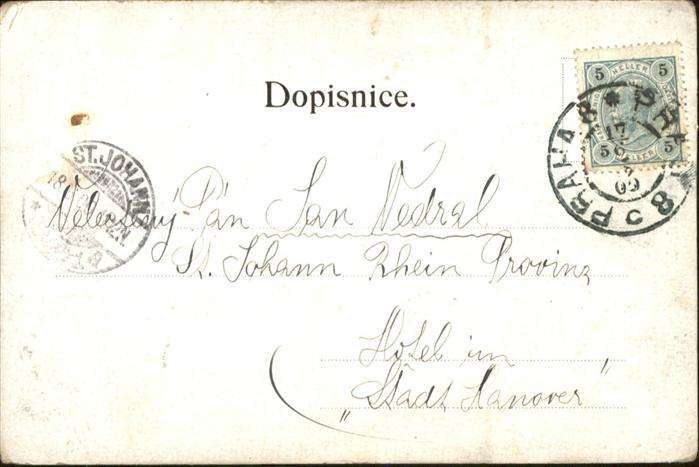 Dopisnice.
5 HELLER 5
5 5
PRAHA 8 * PRAG 8
17
ST. JOHANN
18
Velectěný Pán Jan Vedral
St. Johann Rhein Provinz
Hotel im
„Stadt Hanover"